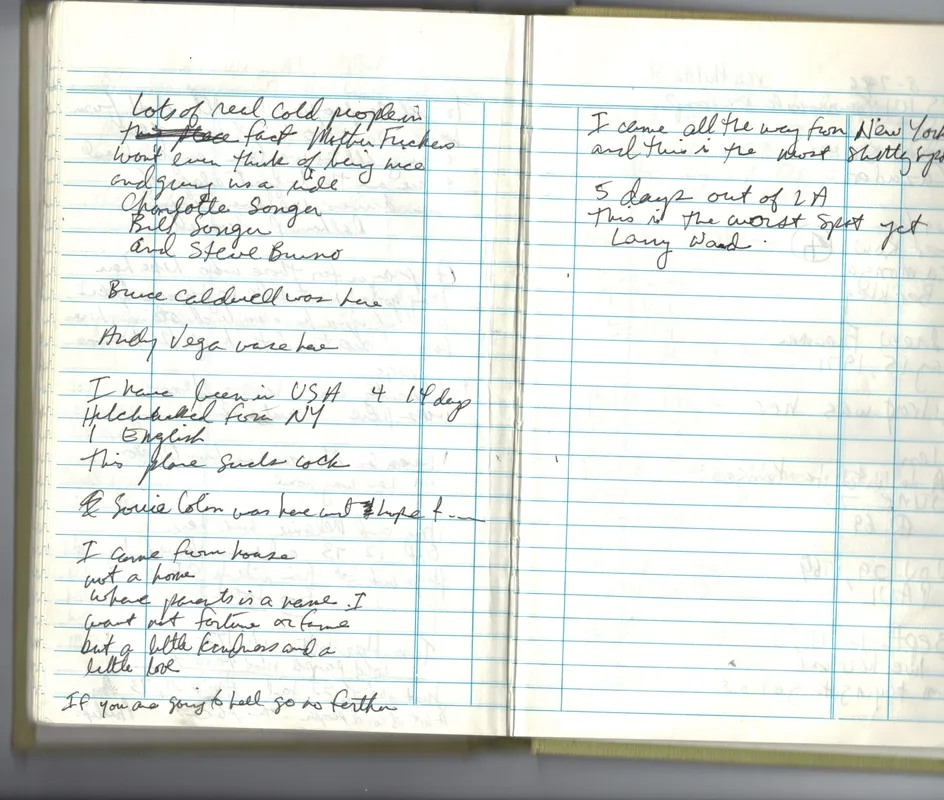 Lots of real cold people in
fact Mother Fuckers
wont even think of being nice
and giving us a ride
Charlotte Songer
Bill Songer
and Steve Bruno
Bruce Caldwell was here
Andy Vega was here
I have been in USA 4 14 days
Hitchhiked from NY
1 English
This place sucks cock
was here and I hope I ....
I came from house
not a home
where parents is a name. I
want not fortune or fame
but a little kindness and a
little love
If you are going to hell go no farther
I came all the way from New York
and this is the most shitty spot
5 days out of LA
This is the worst spot yet
Larry Ward